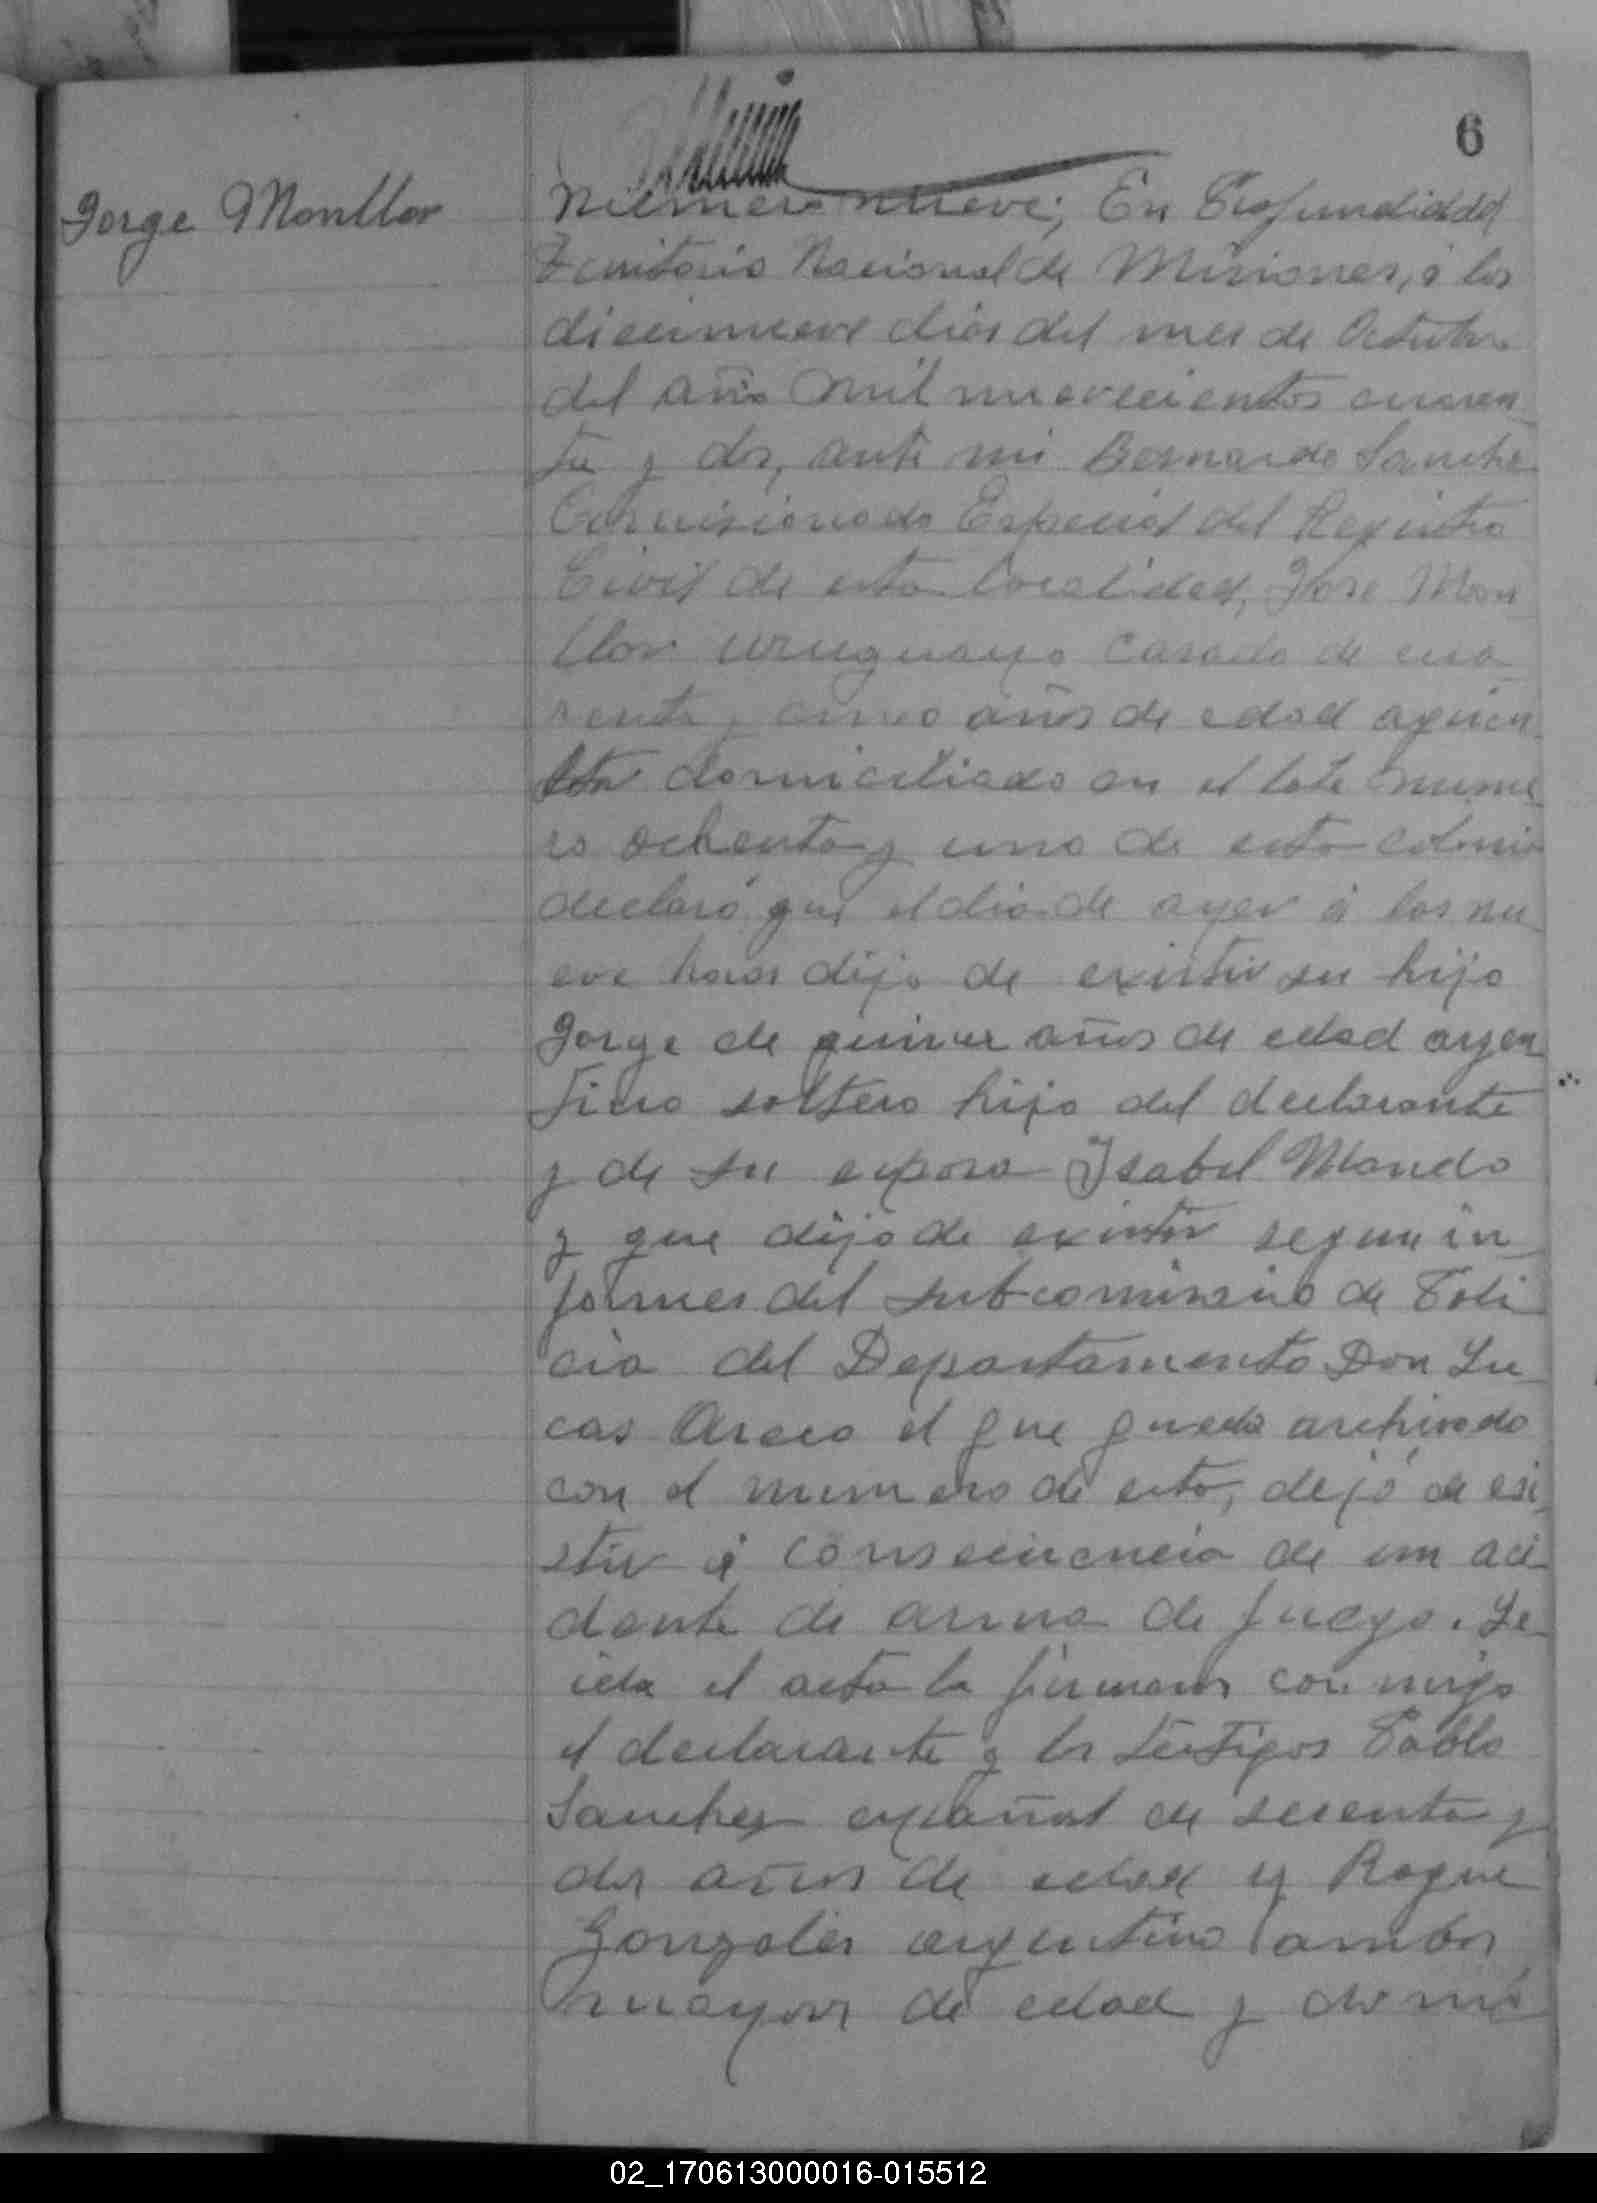 6
Jorge Monllor
Numero nueve; En Profundidad
Territorio Nacional de Misiones, á los
diecinueve dias del mes de Octubre
del año mil nuevecientos cuaren
ta y dos, ante mi Bernardo Sanchez
Comisionado Especial del Registro
Civil de esta localidad, Jose Mon
llor uruguayo casado de cua
renta y cinco años de edad
domiciliado en el lote nume
ro ochenta y uno de esta colonia
declaró que el dia de ayer á las nu
eve horas dijo de existir su hijo
Jorge de quince años de edad argen
tino soltero hijo del declarante
y de su esposa Isabel Mando
y que dijo de existir segun in
formes del subcomisario de Poli
cia del Departamento Don Lu
cas el que queda archivado
con el numero de esta, dejó de esi
stir á consecuencia de un aci
dente de arma de fuego. Le
ida el acta la firmaron conmigo
el declarante y los testigos Pablo
Sanchez español de sesenta y
dos años de edad y Roque
Gonzales argentino ambos
mayores de edad y domi
02_170613000016-015512